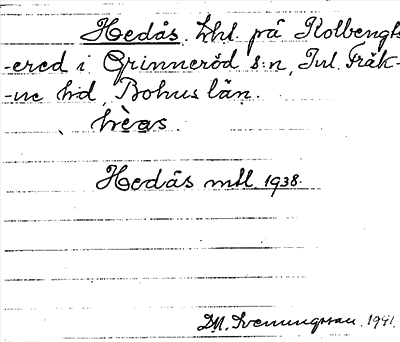 Hedås. Lht på Kolbengts
-ered i Grinneröd s:n, Inl. Fräk-
-ne hd, Bohus län.
hèas.
Hedås mtl 1938.
D.M. Svenungsson. 1941.